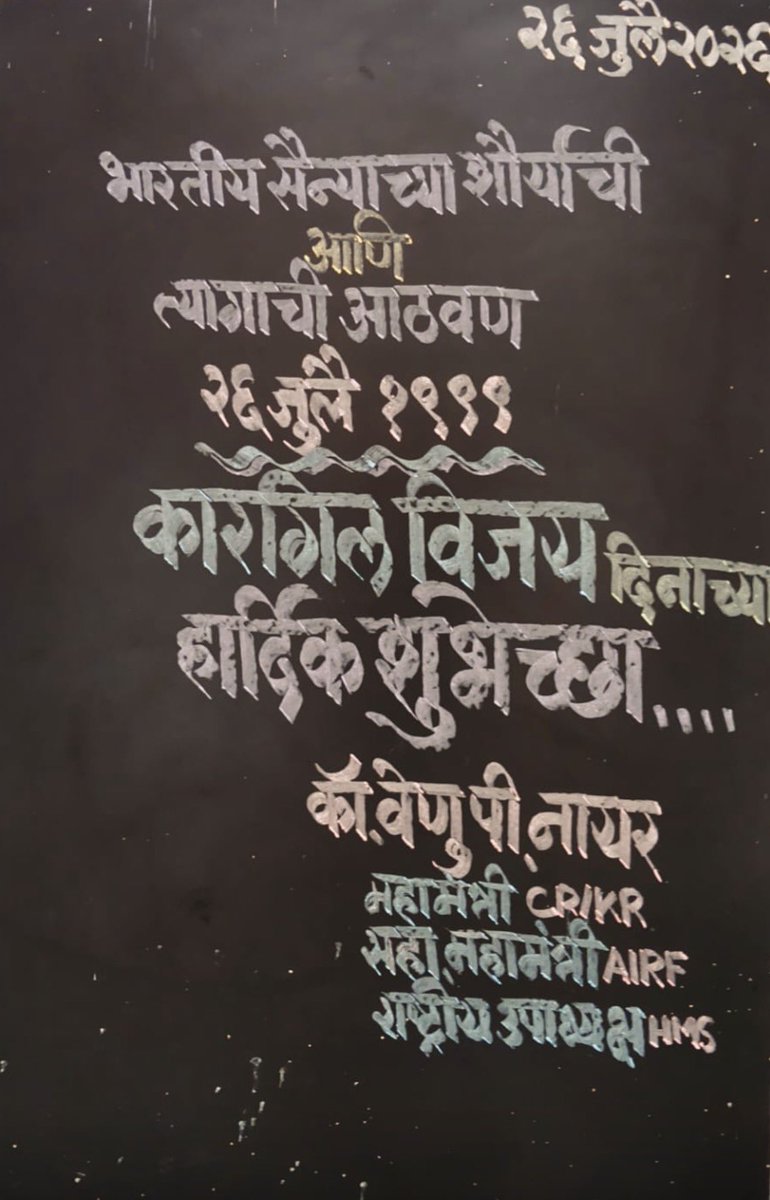 २६ जुलै २०२६
भारतीय सैन्याच्या शौर्याची
आणि
त्यागाची आठवण
२६ जुलै १९९९
कारगिल विजय दिनाच्या
हार्दिक शुभेच्छा....
कॉ. वेणु पी. नायर
महामंत्री CR/KR
सहा. महामंत्री AIRF
राष्ट्रीय उपाध्यक्ष HMS